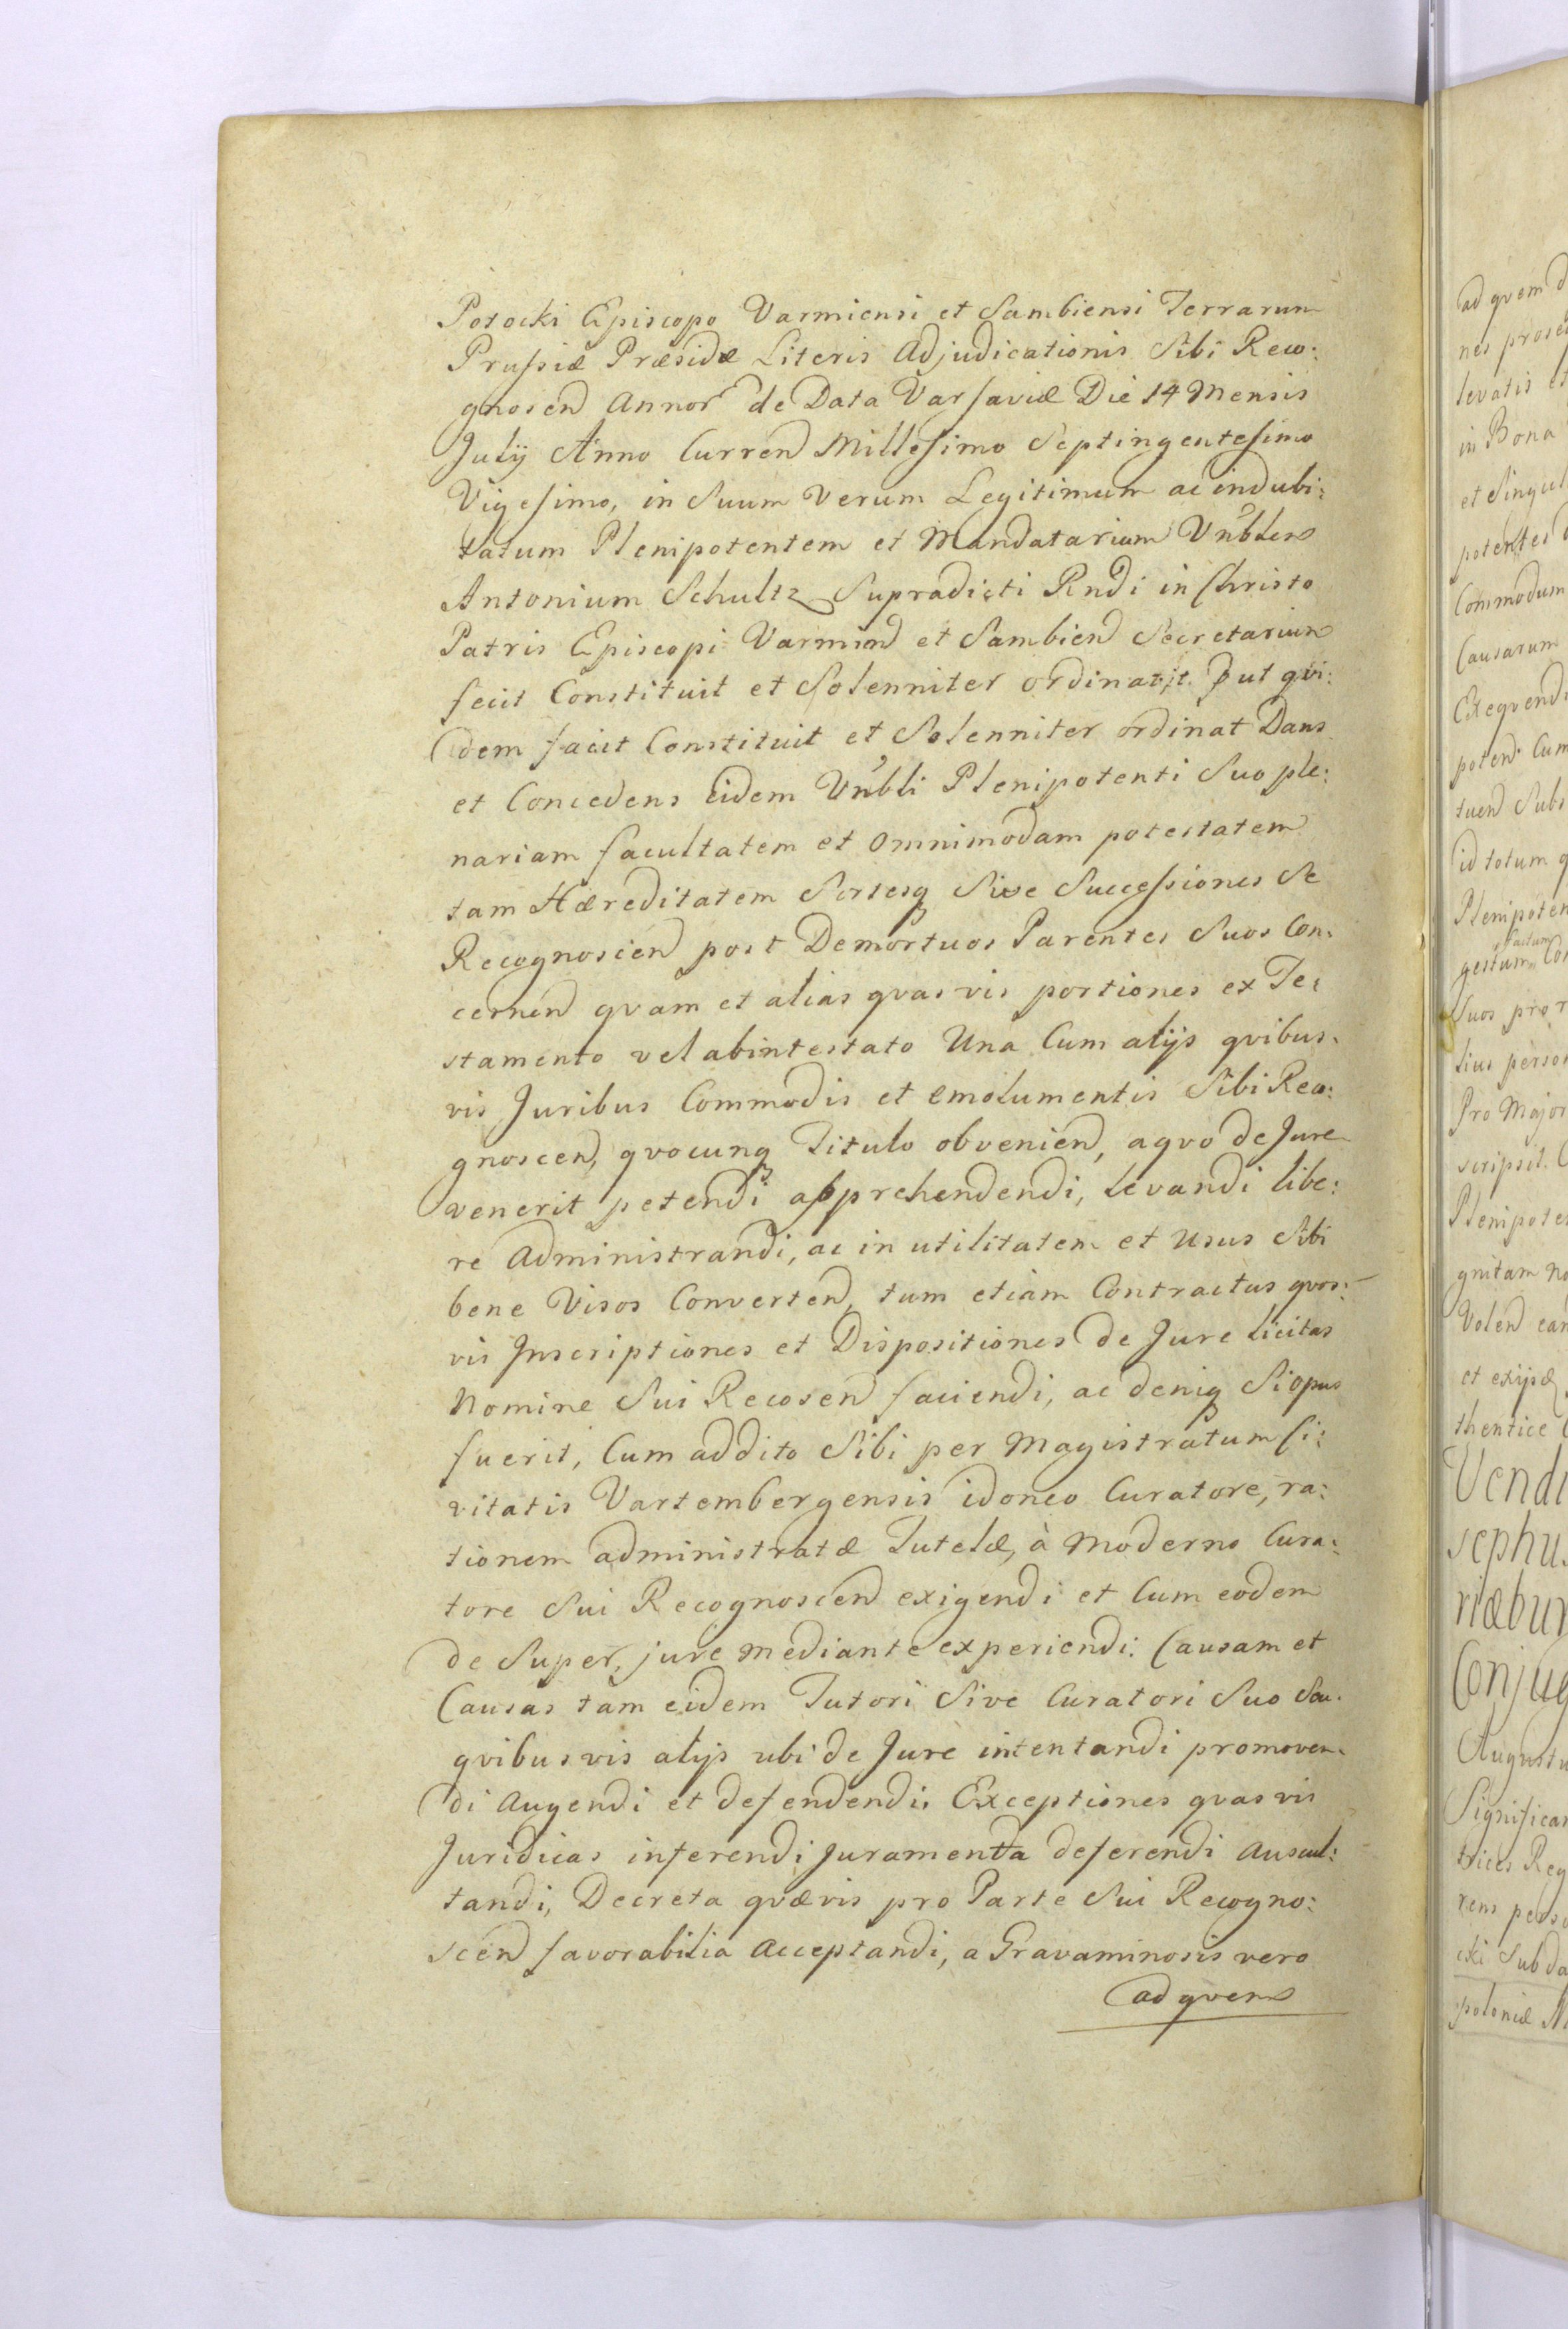 Potocki Episcopo Varmiensi et Sambiensi Terrarum
Prussiæ Præside Literis Adjudicationis Sibi Reco:
gnoscen Annor de Data Varsaviæ Die 14 Mensis
July Anno Curren Millesimo Septingentesimo
Vigesimo, in Suum Verum Legitimum ac indubi:
tatum Plenipotentem et Mandatarium Vnblem
Antonium Schultz Supradicti Rndi in Christo
Patris Episcopi Varmien et Sambien Secretarium
fecit Constituit et Solenniter ordinavit. Put qvi:
dem facit Constituit et Solenniter ordinat Dans
et Concedens eidem Vnbli Plenipotenti Suo ple:
nariam facultatem et omnimodam potestatem
tam Hæreditatem Sortesq Sive Successiones Se
Recognoscen post Demortuos Parentes Suos Con:
cernen qvam et alias qvas vis portiones ex Te:
stamento vel abintestato Una Cum alijs qvibus:
vis Juribus Commodis et emolumentis Sibi Reco:
gnoscen, qvocunq Titulo obvenien, a qvo de Jure
venerit petendi apprehendendi, levandi libe:
re Administrandi, ac in utilitatem et Usus Sibi
bene Visos Converten, tum etiam Contractus qvos:
vis Inscriptiones et Dispositiones de Jure licitas
Nomine Sui Recosen faciendi, ac deniq Si opus
fuerit, Cum addito Sibi per Magistratum Ci:
vitatis Vartembergensis idoneo Curatore, ra:
tionem administratæ Tutelæ, à Moderno Cura:
tore Sui Recognoscen exigendi et Cum eodem
de Super, jure mediante experiendi. Causam et
Causas tam eidem Tutori Sive Curatori Suo Seu
qvibusvis alijs ubi de Jure intentandi promoven:
di Augendi et defendendi, Exceptiones qvas vis
Juridicas inferendi Juramenta deferendi Auscul:
tandi, Decreta qvævis pro Parte Sui Recogno:
scen favorabilia Acceptandi, a Gravaminosis vero
ad qvem
ad qvem
nes prose
levatis et
in Bona
et Singul
potentes
Commodum
Causarum
Exeqvendi
poten Cum
tuen Subs
id totum q
Plenipoten
factum
gestum Con
Suos pro r
lius person
Pro Major
scripsit. C
Plenipoten
gnitam no
Volen ean
et exijsq
thentice
Vendi
sephus
riæbur
Conjug
Augustu
Significan
trices Reg
rens perso
cki Subda
poloniæ M